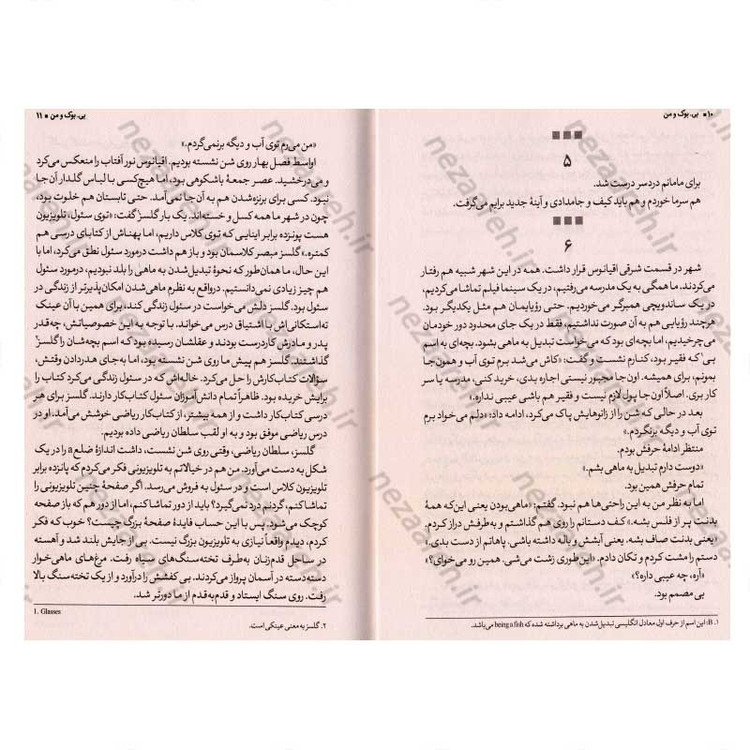 ۱۰ ■ بی. بوک و من
۵
برای مامانم دردسر درست شد.
هم سرما خوردم و هم باید کیف و جامدادی و آینهٔ جدید برایم می‌گرفت.
۶
شهر در قسمت شرقی اقیانوس قرار داشت. همه در این شهر شبیه هم رفتار
می‌کردند. ما همگی به یک مدرسه می‌رفتیم، در یک سینما فیلم تماشا می‌کردیم،
در یک ساندویچی همبرگر می‌خوردیم. حتی رؤیاهایمان هم مثل یکدیگر بود.
هرچند رؤیایی هم به آن صورت نداشتیم، فقط در یک جای محدود دور خودمان
می‌چرخیدیم، اما بچه‌ای بود که می‌خواست تبدیل به ماهی بشود. بچه‌ای به اسم
بی۱ که فقیر بود، کنارم نشست و گفت: «کاش می‌شد برم توی آب و همون‌جا
بمونم، برای همیشه. اون‌جا مجبور نیستی اجاره بدی، خرید کنی، مدرسه یا سر
کار بری. اصلاً اون‌جا پول لازم نیست و فقیر هم باشی عیبی نداره.»
بعد در حالی که شن را از زانوهایش پاک می‌کرد، ادامه داد: «دلم می‌خواد برم
توی آب و دیگه برنگردم.»
منتظر ادامهٔ حرفش بودم.
«دوست دارم تبدیل به ماهی بشم.»
تمام حرفش همین بود.
اما به نظر من به این راحتی‌ها هم نبود. گفتم: «ماهی‌بودن یعنی این‌که همهٔ
بدنت پر از فلس بشه.» کف دستانم را روی هم گذاشتم و به‌طرفش دراز کردم.
«یعنی بدنت صاف بشه، یعنی آبشش و باله داشته باشی. پاهاتم از دست بدی.»
دستم را مشت کردم و تکان دادم. «این‌طوری زشت می‌شی. همین رو می‌خوای؟»
«آره، چه عیبی داره؟»
بی مصمم بود.
۱. B: این اسم از حرف اول معادل انگلیسی تبدیل‌شدن به ماهی برداشته شده که being a fish می‌باشد.
بی. بوک و من ■ ۱۱
«من می‌رم توی آب و دیگه برنمی‌گردم.»
اواسط فصل بهار روی شن نشسته بودیم. اقیانوس نور آفتاب را منعکس می‌کرد
و می‌درخشید. عصر جمعهٔ باشکوهی بود، اما هیچ‌کسی با لباس گلدار آن جا
نبود. کسی برای برنزه‌شدن هم به آن جا نمی‌آمد. حتی تابستان هم خلوت بود،
چون در شهر ما همه کسل و خسته‌اند. یک بار گلسز گفت: «توی سئول، تلویزیون
هست پونزده برابر اینایی که توی کلاس داریم، اما پهناش از کتابای درسی هم
کمتره.» گلسز مبصر کلاسمان بود و باز هم داشت درمورد سئول نطق می‌کرد، اما با
این حال، ما همان‌طور که نحوهٔ تبدیل‌شدن به ماهی را بلد نبودیم، درمورد سئول
هم چیز زیادی نمی‌دانستیم. درواقع به نظرم ماهی‌شدن امکان‌پذیرتر از زندگی در
سئول بود. گلسز دلش می‌خواست در سئول زندگی کند، برای همین با آن عینک
ته‌استکانی‌اش با اشتیاق درس می‌خواند. با توجه به این خصوصیاتش، چه‌قدر
پدر و مادرش کاردرست بودند و عقلشان رسیده بود که اسم بچه‌شان را گلسز
گذاشتند. گلسز هم پیش ما روی شن نشسته بود، اما به‌جای هدردادن وقتش،
سؤالات کتاب‌کارش را حل می‌کرد. خاله‌اش که در سئول زندگی می‌کرد کتاب را
برایش خریده بود. ظاهراً تمام دانش‌آموزان سئول کتاب‌کار دارند. گلسز برای هر
درسی کتاب‌کار داشت و از همه بیشتر، از کتاب‌کار ریاضی خوشش می‌آمد. او در
درس ریاضی موفق بود و به او لقب سلطان ریاضی داده بودیم.
گلسز، سلطان ریاضی، وقتی روی شن نشست، داشت اندازهٔ ضلع a را در یک
شکل به دست می‌آورد. من هم در خیالاتم به تلویزیونی فکر می‌کردم که پانزده برابر
تلویزیون کلاس است و در سئول به فروش می‌رسد. اگر صفحهٔ چنین تلویزیونی را
تماشا کنم، گردنم درد نمی‌گیرد؟ باید از دور تماشا کنم، اما از دور هم که باز صفحه
کوچک می‌شود. پس با این حساب فایدهٔ صفحهٔ بزرگ چیست؟ خوب که فکر
کردم، دیدم واقعاً نیازی به تلویزیون بزرگ نیست. بی از جایش بلند شد و آهسته
در ساحل قدم‌زنان به‌طرف تخته‌سنگ‌های سیاه رفت. مرغ‌های ماهی‌خوار
دسته‌دسته در آسمان پرواز می‌کردند. بی کفشش را درآورد و از یک تخته‌سنگ بالا
رفت. روی سنگ ایستاد و قدم‌به‌قدم از ما دورتر شد.
1. Glasses
۲. گلسز به معنی عینکی است.
nezaareh.ir